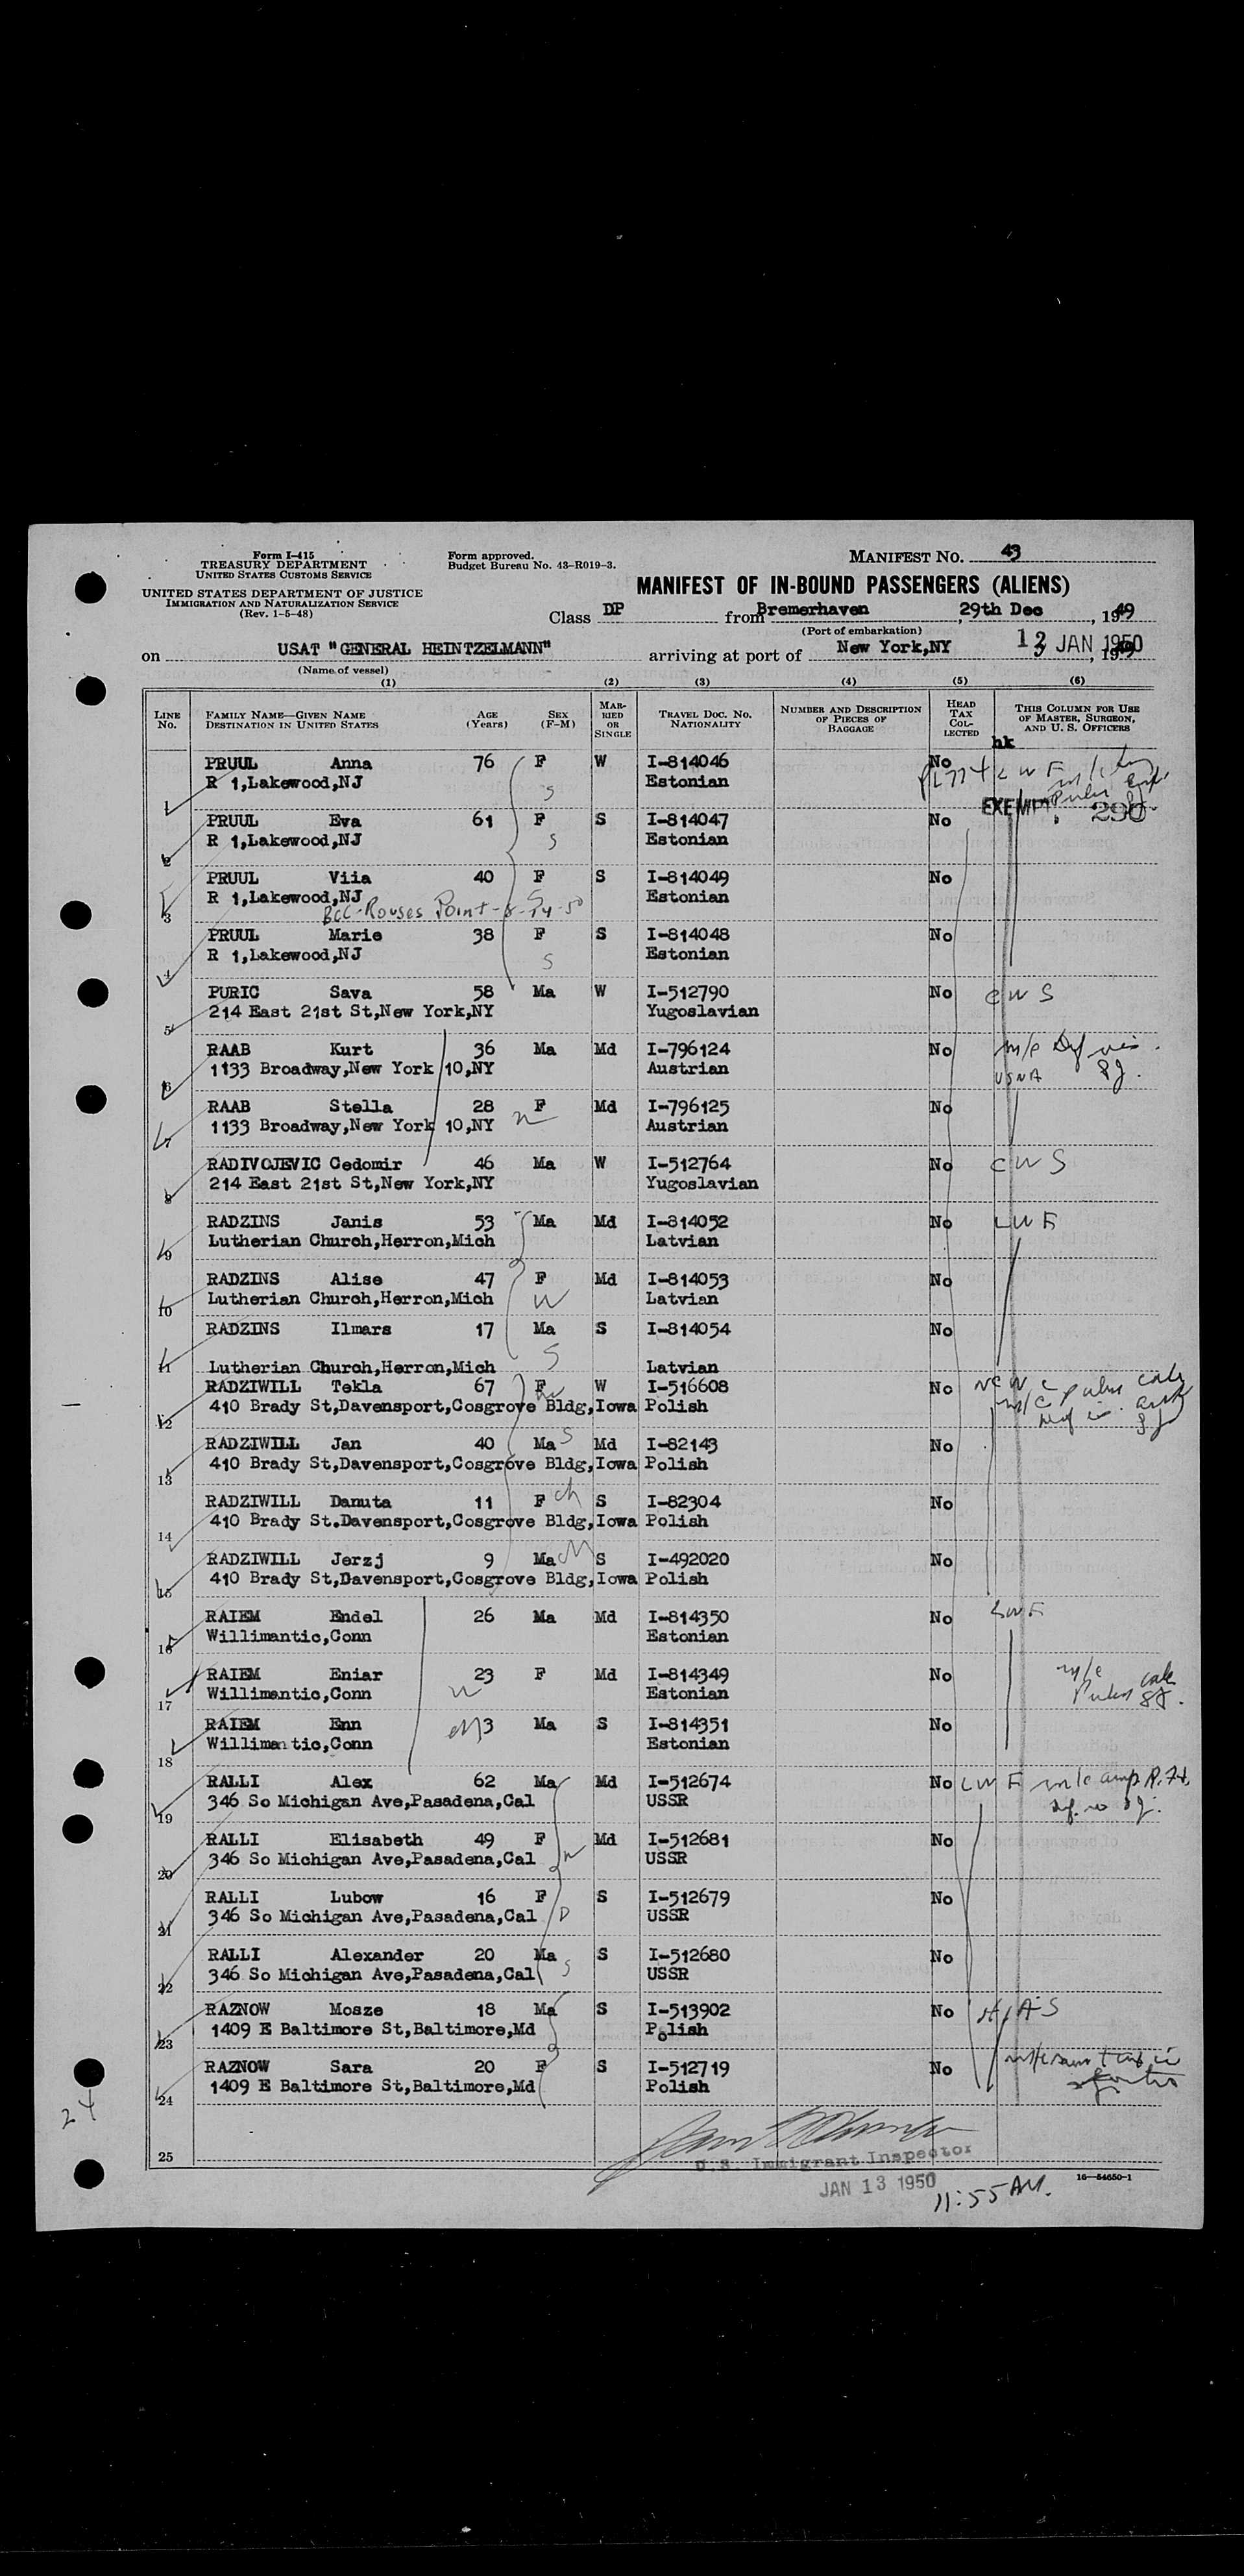 Form I-415
TREASURY DEPARTMENT
UNITED STATES CUSTOMS SERVICE
UNITED STATES DEPARTMENT OF JUSTICE
IMMIGRATION AND NATURALIZATION SERVICE
(Rev. 1-5-48)
Form approved.
Budget Bureau No. 43-R019-3.
MANIFEST NO. 43
MANIFEST OF IN-BOUND PASSENGERS (ALIENS)
Class DP from Bremerhaven, 29th Dec, 1949
(Port of embarkation)
on USAT "GENERAL HEINTZELMANN" arriving at port of New York,NY 13 JAN 1950
(Name of vessel)
(1) (2) (3) (4) (5) (6)
LINE NO. FAMILY NAME—GIVEN NAME DESTINATION IN UNITED STATES AGE (Years) SEX (F-M) MARRIED OR SINGLE TRAVEL DOC. NO. NATIONALITY NUMBER AND DESCRIPTION OF PIECES OF BAGGAGE HEAD TAX COLLECTED THIS COLUMN FOR USE OF MASTER, SURGEON, AND U. S. OFFICERS
hk
PRUUL Anna 76 F W I-814046 No
1 R 1,Lakewood,NJ S Estonian
290
PRUUL Eva 61 F S I-814047 No
2 R 1,Lakewood,NJ S Estonian
PRUUL Viia 40 F S I-814049 No
3 R 1,Lakewood,NJ S Estonian
Rouses Point
PRUUL Marie 38 F S I-814048 No
4 R 1,Lakewood,NJ S Estonian
PURIC Sava 58 Ma W I-512790 No C W S
5 214 East 21st St,New York,NY Yugoslavian
RAAB Kurt 36 Ma Md I-796124 No
6 1133 Broadway,New York 10,NY Austrian USNA
RAAB Stella 28 F Md I-796125 No
7 1133 Broadway,New York 10,NY W Austrian
RADIVOJEVIC Cedomir 46 Ma W I-512764 No C W S
8 214 East 21st St,New York,NY Yugoslavian
RADZINS Janis 53 Ma Md I-814052 No L W F
9 Lutherian Church,Herron,Mich Latvian
RADZINS Alise 47 F Md I-814053 No
10 Lutherian Church,Herron,Mich W Latvian
RADZINS Ilmars 17 Ma S I-814054 No
11 Lutherian Church,Herron,Mich S Latvian
RADZIWILL Tekla 67 F W I-516608 No NCWC
12 410 Brady St,Davensport,Cosgrove Bldg,Iowa Polish
RADZIWILL Jan 40 Ma S Md I-82143 No
13 410 Brady St,Davensport,Cosgrove Bldg,Iowa Polish
RADZIWILL Danuta 11 F ch S I-82304 No
14 410 Brady St.Davensport,Cosgrove Bldg,Iowa Polish
RADZIWILL Jerzj 9 Ma ch S I-492020 No
15 410 Brady St,Davensport,Cosgrove Bldg,Iowa Polish
RAIEM Endel 26 Ma Md I-814350 No LWF
16 Willimantic,Conn Estonian
RAIEM Eniar 23 F Md I-814349 No
17 Willimantic,Conn W Estonian
RAIEM Enn 3 Ma S I-814351 No
18 Willimantic,Conn Estonian
RALLI Alex 62 Ma Md I-512674 No L W F
19 346 So Michigan Ave,Pasadena,Cal USSR
RALLI Elisabeth 49 F Md I-512681 No
20 346 So Michigan Ave,Pasadena,Cal W USSR
RALLI Lubow 16 F S I-512679 No
21 346 So Michigan Ave,Pasadena,Cal D USSR
RALLI Alexander 20 Ma S I-512680 No
22 346 So Michigan Ave,Pasadena,Cal S USSR
RAZNOW Mosze 18 Ma S I-513902 No HIAS
23 1409 E Baltimore St,Baltimore,Md Polish
RAZNOW Sara 20 F S I-512719 No
24 1409 E Baltimore St,Baltimore,Md Polish
24
25
U.S. Immigrant Inspector
JAN 13 1950
11:55 AM.
16—54650-1